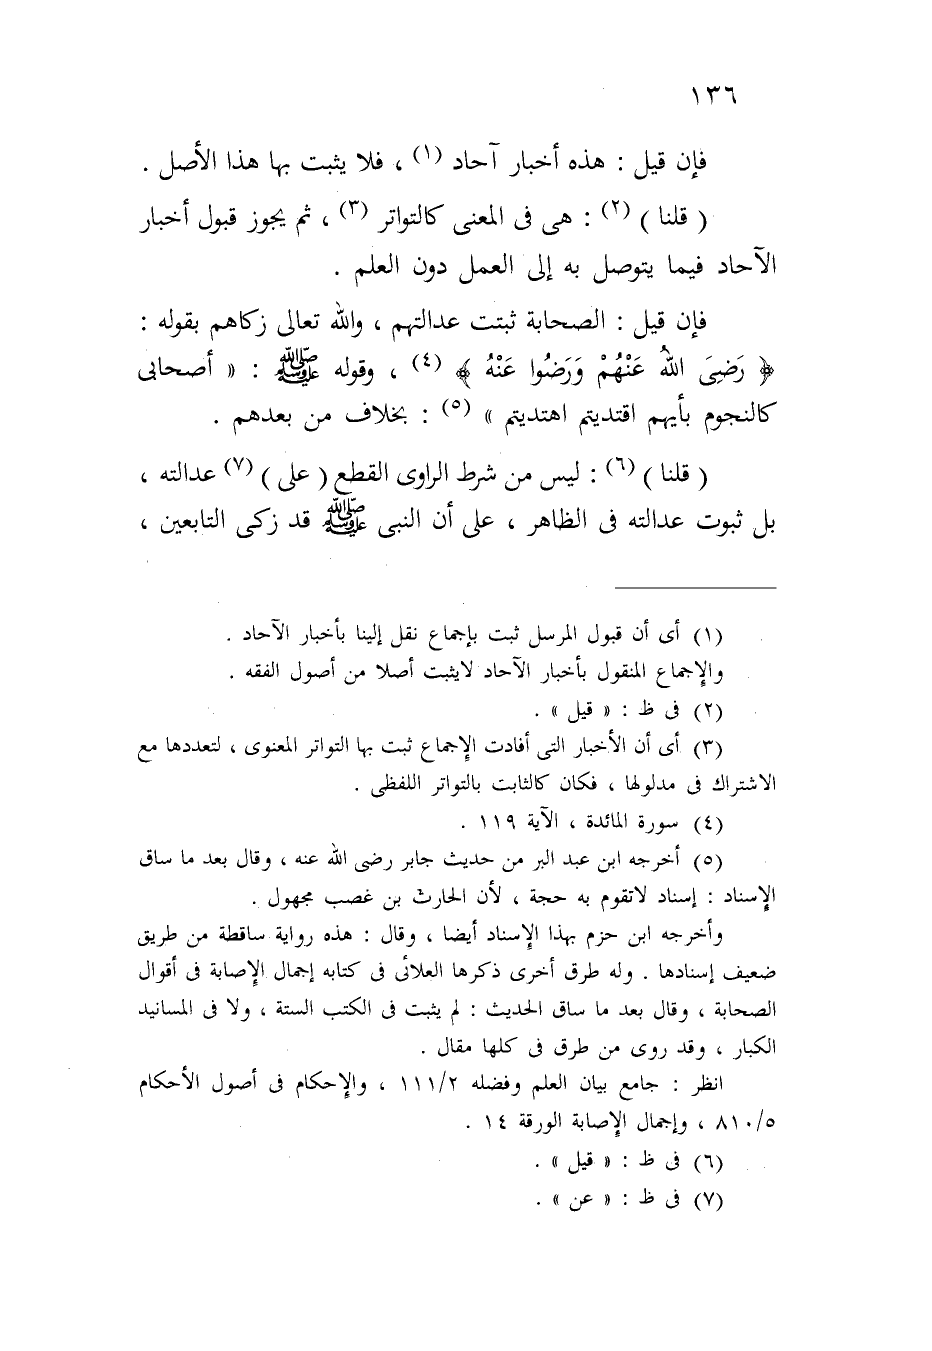 ١٣٦
فإن قيل : هذه أخبار آحاد (١) ، فلا يثبت بها هذا الأصل .
( قلنا ) (٢) : هى فى المعنى كالتواتر (٣) ، ثم يجوز قبول أخبار
الآحاد فيما يتوصل به إلى العمل دون العلم .
فإن قيل : الصحابة ثبتت عدالتهم ، والله تعالى زكاهم بقوله :
﴿ رَضِىَ اللهُ عَنْهُمْ وَرَضُوا عَنْهُ ﴾ (٤) ، وقوله ﷺ : « أصحابى
كالنجوم بأيهم اقتديتم اهتديتم » (٥) : بخلاف من بعدهم .
( قلنا ) (٦) : ليس من شرط الراوى القطع ( على ) (٧) عدالته ،
بل ثبوت عدالته فى الظاهر ، على أن النبى ﷺ قد زكى التابعين ،
(١) أى أن قبول المرسل ثبت بإجماع نقل إلينا بأخبار الآحاد .
والإجماع المنقول بأخبار الآحاد لايثبت أصلا من أصول الفقه .
(٢) فى ظ : « قيل » .
(٣) أى أن الأخبار التى أفادت الإجماع ثبت بها التواتر المعنوى ، لتعددها مع
الاشتراك فى مدلولها ، فكان كالثابت بالتواتر اللفظى .
(٤) سورة المائدة ، الآية ١١٩ .
(٥) أخرجه ابن عبد البر من حديث جابر رضى الله عنه ، وقال بعد ما ساق
الإسناد : إسناد لاتقوم به حجة ، لأن الحارث بن غصب مجهول .
وأخرجه ابن حزم بهذا الإسناد أيضا ، وقال : هذه رواية ساقطة من طريق
ضعيف إسنادها . وله طرق أخرى ذكرها العلائى فى كتابه إجمال الإصابة فى أقوال
الصحابة ، وقال بعد ما ساق الحديث : لم يثبت فى الكتب الستة ، ولا فى المسانيد
الكبار ، وقد روى من طرق فى كلها مقال .
انظر : جامع بيان العلم وفضله ١١١/٢ ، والإحكام فى أصول الأحكام
٨١٠/٥ ، وإجمال الإصابة الورقة ١٤ .
(٦) فى ظ : « قيل » .
(٧) فى ظ : « عن » .